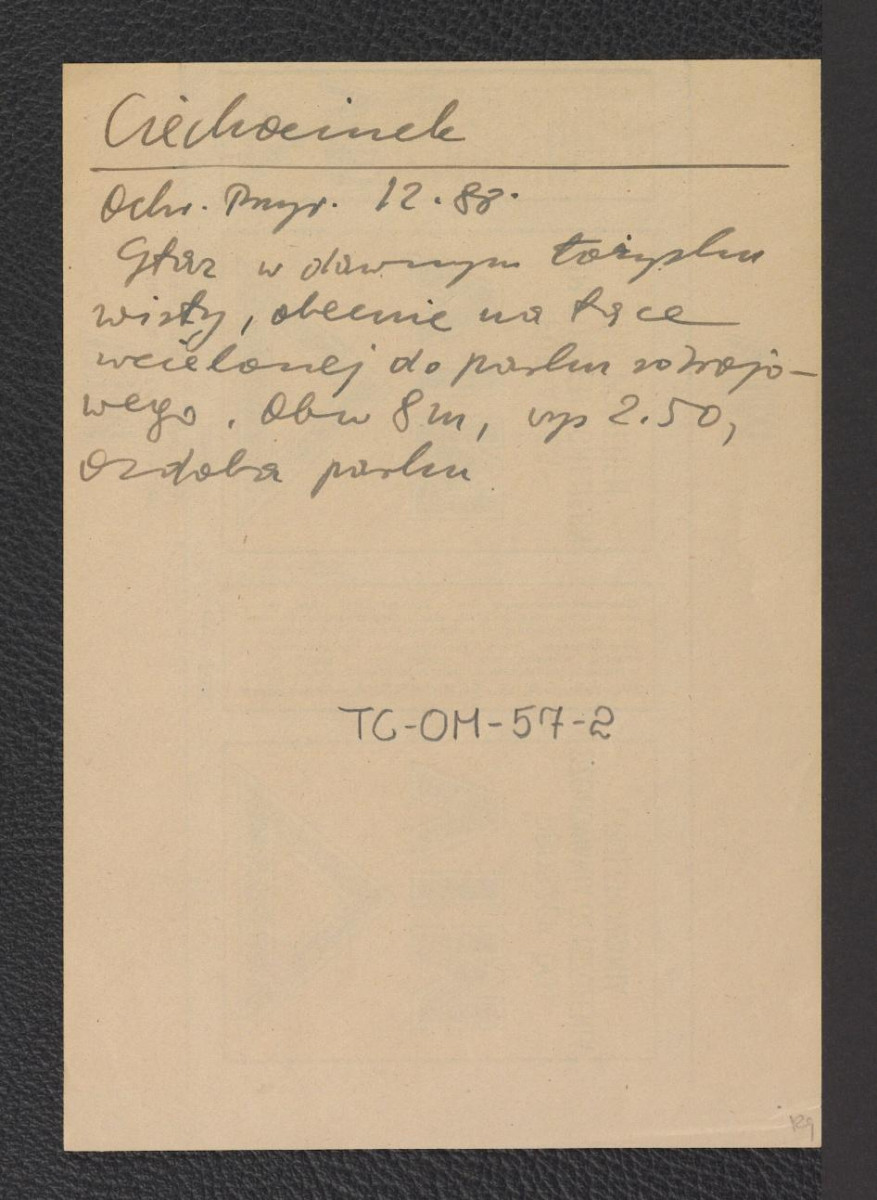 Ciechocinek
Ochr. Przyr. 12. 88.
Głaz w dawnym łożysku
wisły, obecnie na łące
wcielonej do parku zdrojo-
wego. Obw 8 m, wys 2.50,
Ozdoba parku
TC-OM-57-2